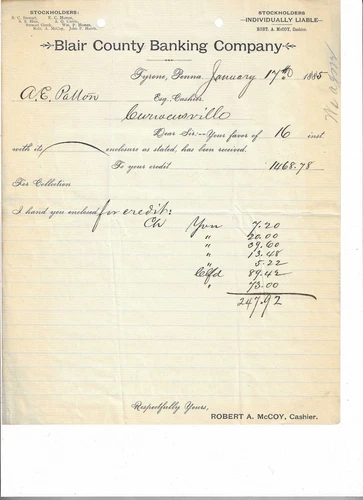 STOCKHOLDERS:
STOCKHOLDERS
INDIVIDUALLY LIABLE
ROBT. A. McCOY, Cashier.
Blair County Banking Company
Tyrone, Penna. January 17th 1885
A. E. Patton
Esq. Cashier.
Curwensville
Dear Sir:—Your favor of 16 inst.
with its enclosure as stated, has been received.
To your credit 1468.78
For Collection
I hand you enclosed for credit:
Ck Yon 7.20
" 20.00
" 39.60
" 13.48
" 5.22
Cfd 89.42
" 73.00
247.92
Respectfully Yours,
ROBERT A. McCOY, Cashier.